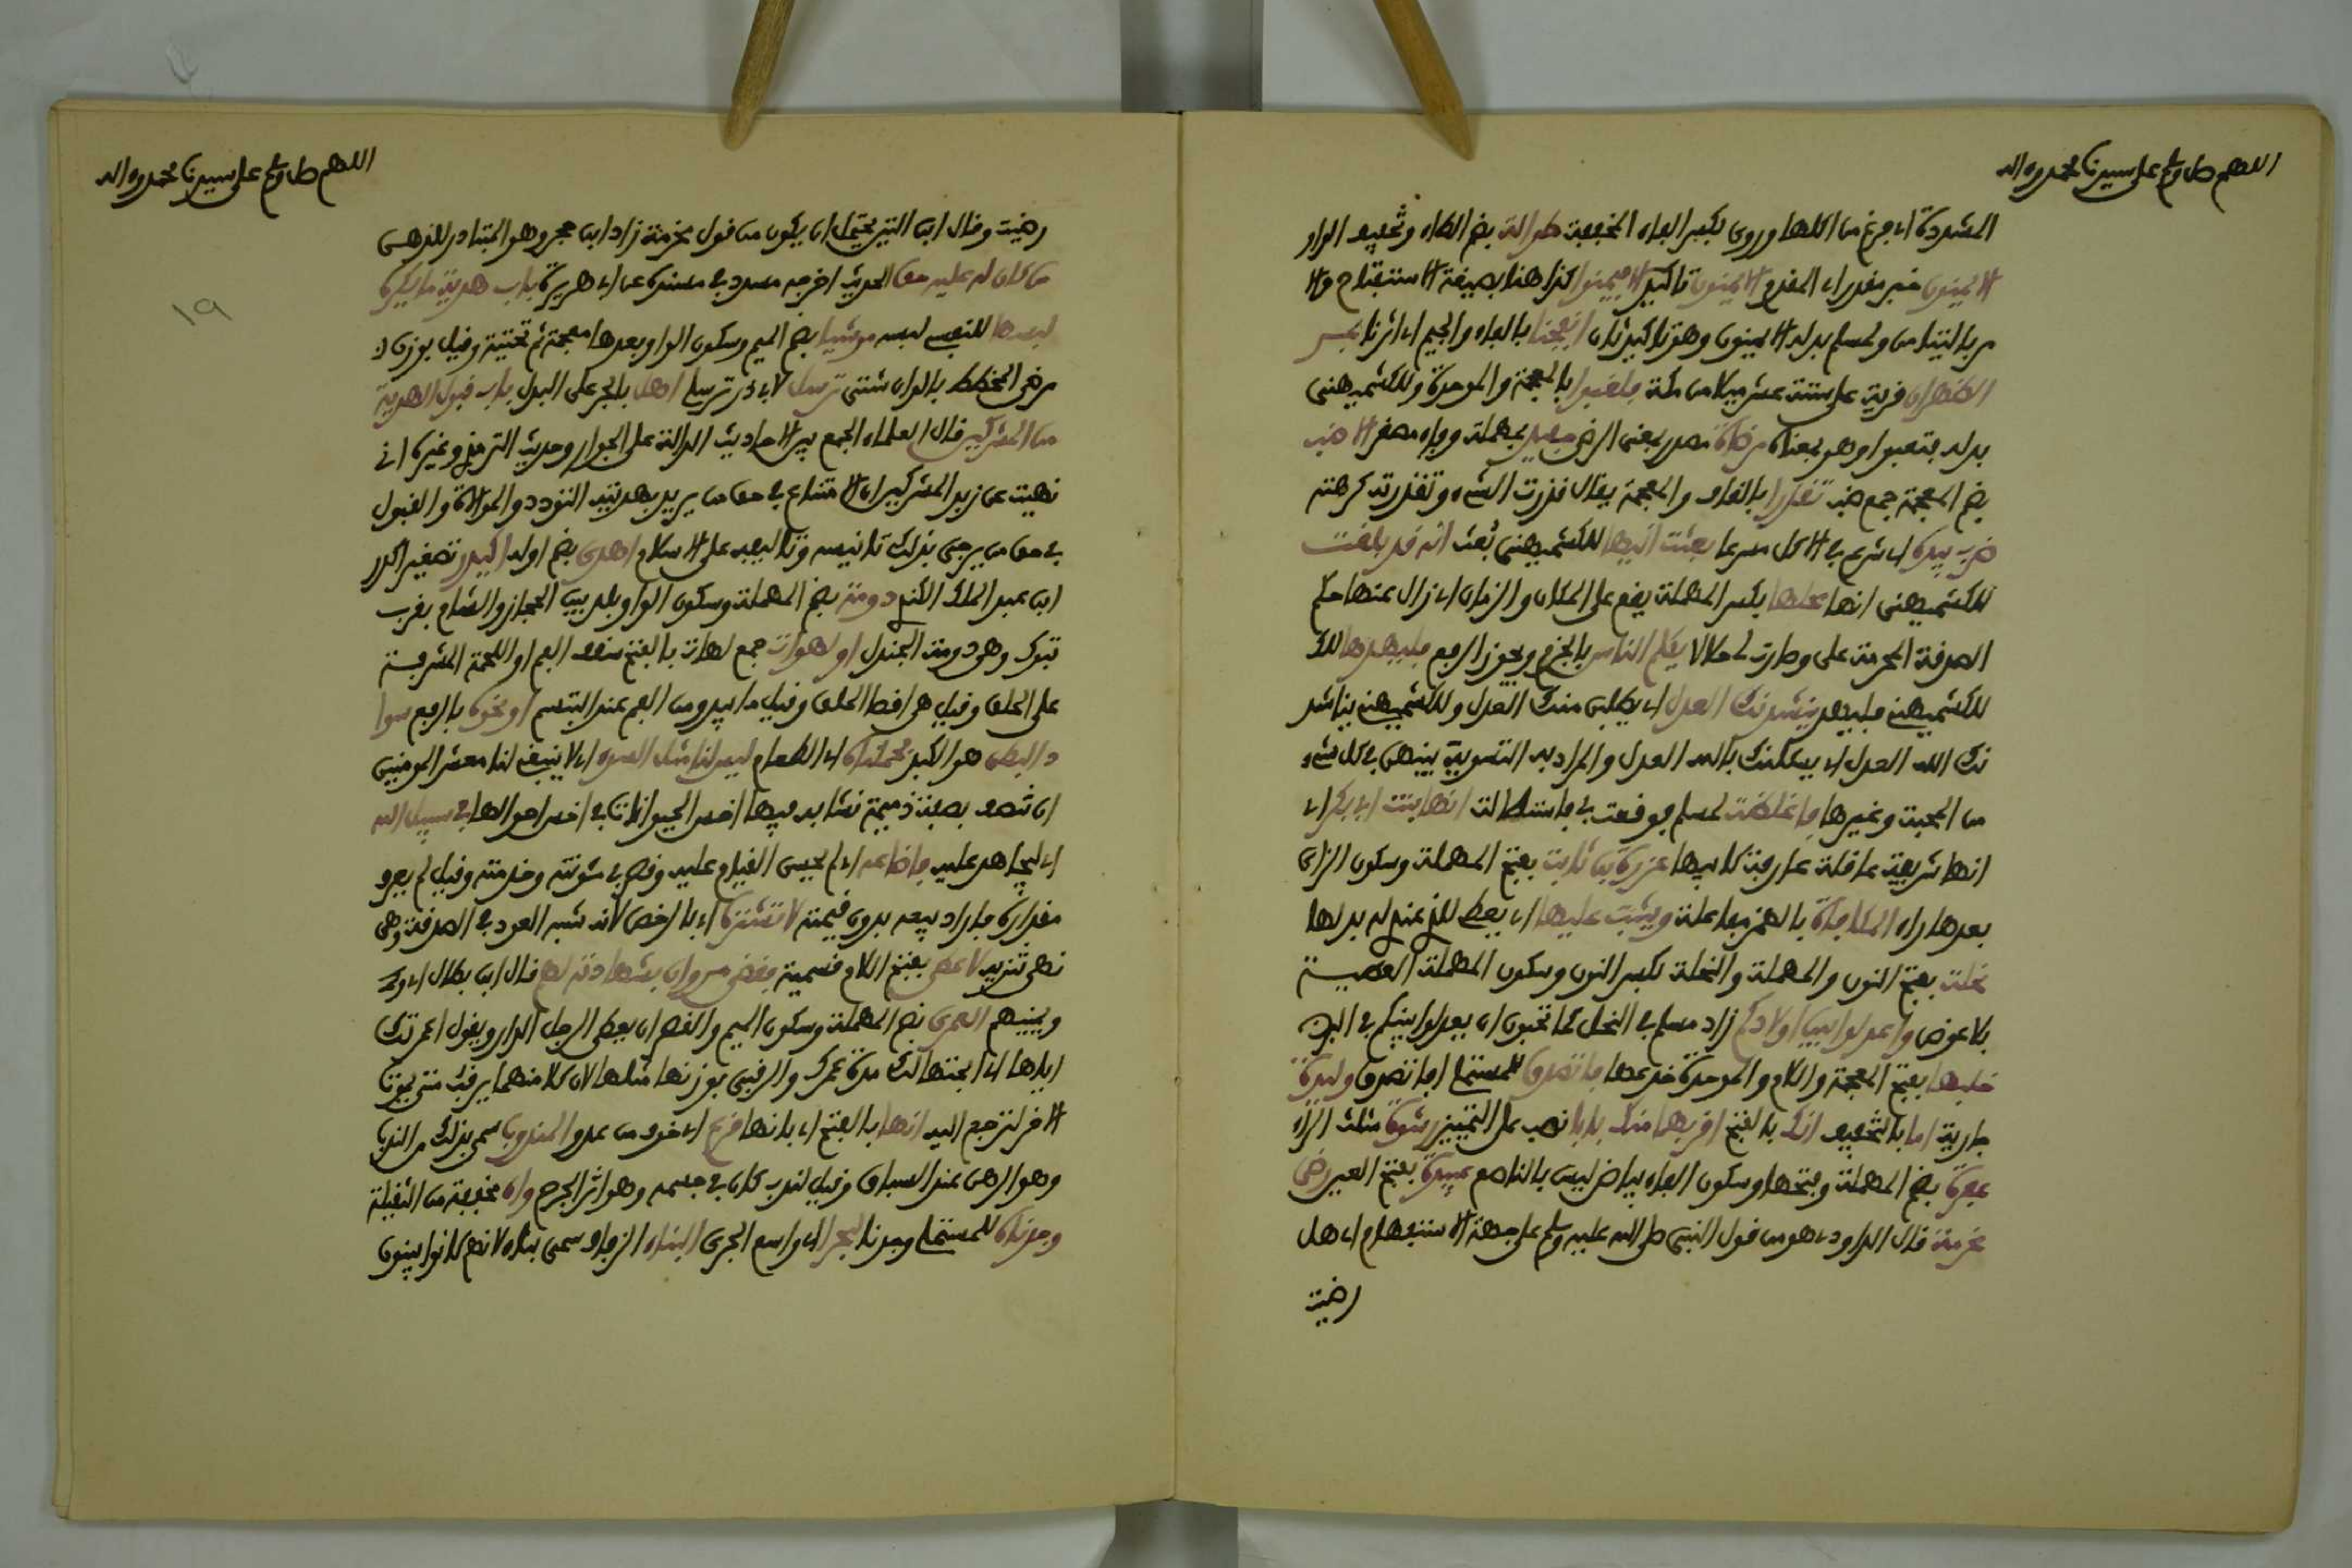 اللهم صل وسلم على سيدنا محمد وءاله
المشددة اي فرغ من اكلها وروى بكسر الفاء المخففة طوالة بضم الطاء وتخفيف الواو
الايمنون خبر مقدر اي المقدم الايمنون تاكيد الا فيمنوا كذا هنا بصيغة الاستفتاح والا
مر بالتيامن ولمسلم بدله الايمنون وهو تاكيد ثان انفجنا بالفاء والجيم اي اثرنا بمر
الظهران قرية على ستة عشر ميلا من مكة فلغبوا بالمعجمة والموحدة وللكشميهني
بدله فتعبوا وهو بمعناه مرضاة مصدر بمعنى الرضى حفيد بمهملة وفاء مصغر الاضب
بضم المعجمة جمع ضب تقذرا بالقاف والمعجمة يقال قذرت الشيء وتقذرته كرهته
ضرب بيده اي شرع في الاكل مسرعا بعثت اليها للكشميهني بُعثت انه قد بلغت
للكشميهني انها محلها بكسر المهملة يقع على المكان والزمان اي زال عنها حكم
الصدقة المحرمة على وصارت لي حلالا يكلم الناس بالجزم ويجوز الرفع فليهدها لك
للكشميهني فليهد ينشدنك العدل اي يطلبن منك العدل وللكشميهني يناشد
نك الله العدل اي يسئلنك بالله العدل والمراد به التسوية بينهن في كل شيء
من المحبة وغيرها فاغلظت لمسلم فوقعت بي فاستطالت انها بنت ابي بكر اي
انها شريفة عاقلة عارفة كابيها عزرة بن ثابت بفتح المهملة وسكون الزاى
بعدها راء المكافاة بالهمز مفاعلة ويثيب عليها اي يعطي للذي عنده له بدلها
نحلت بفتح النون والمهملة والنحلة بكسر النون وسكون المهملة العطية
بلا عوض واعدلوا بين اولادكم زاد مسلم في النحل كما تحبون ان يعدلوا بينكم في البر
خلبها بفتح المعجمة واللام والموحدة خدعها ما تصدق للمستملي افاتصدق وليدة
جارية اما بالتخفيف انك بالفتح اقربهما منك بابا نصب على التمييز رشوة مثلث الراء
عفرة بضم المهملة وفتحها وسكون الفاء بياض ليس بالناصع عبيدة بفتح العين رضى
مخرمة قال الداودي هو من قول النبي صلى الله عليه وسلم على جهة الاستفهام اي هل
رضيت
اللهم صل وسلم على سيدنا محمد وءاله
رضيت وقال ابن التين يحتمل ان يكون من قول مخرمة زاد ابن حجر وهو المتبادر للذهن
من كان له عليه حق الحديث اخرجه مسدد في مسنده عن ابي هريرة باب هدية ما يكره
لبسها للنسفي لبسه موشيا بضم الميم وسكون الواو بعدها معجمة ثم تحتية وقيل بوزن
مرضي المخطط بالوان شتى ترسل لابي ذر ترسلي اهل بالجر على البدل باب قبول الهدية
من المشركين قال العلماء الجمع بين الاحاديث الدالة على الجواز وحديث الترمذي وغيره اني
نهيت عن زبد المشركين ان الامتناع في حق من يريد بهديته التودد والموالاة والقبول
في حق من يرجى بذلك تانيسه وتاليفه على الاسلام اهدى بضم اوله اكيدر تصغير اكدر
ابن عبد الملك الكندي دومة بضم المهملة وسكون الواو بلد بين الحجاز والشام بقرب
تبوك وهو دومة الجندل او لهوات جمع لهات بالفتح سقف الفم او اللحمة المشرفة
على الحلق وقيل هي اقصا الحلق وقيل ما يبدو من الفم عند التبسم او نحوه بالرفع سوا
د البطن هو الكبد فحملناه اي الطعام ليس لنا مثل السوء اي لا ينبغي لنا معشر المومنين
ان نتصف بصفة ذميمة نشابه فيها اخس الحيوانات في اخس احوالها في سبيل الله
اي ليجاهد عليه فاضاعه اي لم يحسن القيام عليه وقصر في مئونته وخدمته وقيل لم يعرف
مقداره فاراد بيعه بدون قيمته لا تشتره اي بالرخص لانه شبه العود في الصدقة وهى
نهي تنزيه لاعطى بفتح اللام قسمية فقضى مروان بشهادته لهم قال ابن بطال اي وحده
ويمينهم العمرى بضم المهملة وسكون الميم والقصر ان يعطى الرجل الدار ويقول اعمرتك
اياها اي ابحتها لك مدة عمرك والرقبى بوزنها مثلها لان كلا منهما يرقب متى يموت
الاخر لترجع اليه انها بالفتح اي بانها فزع اي خوف من عدو المندوب سمي بذلك من الندب
وهو الرهن عند السباق وقيل لندب كان في جسمه وهو اثر الجرح وان مخففة من الثقيلة
وجدناه للمستملي وجدنا لبحرا اي واسع الجرى البناء الزفاف سمى بناء لانهم كانوا يبنون
١٩